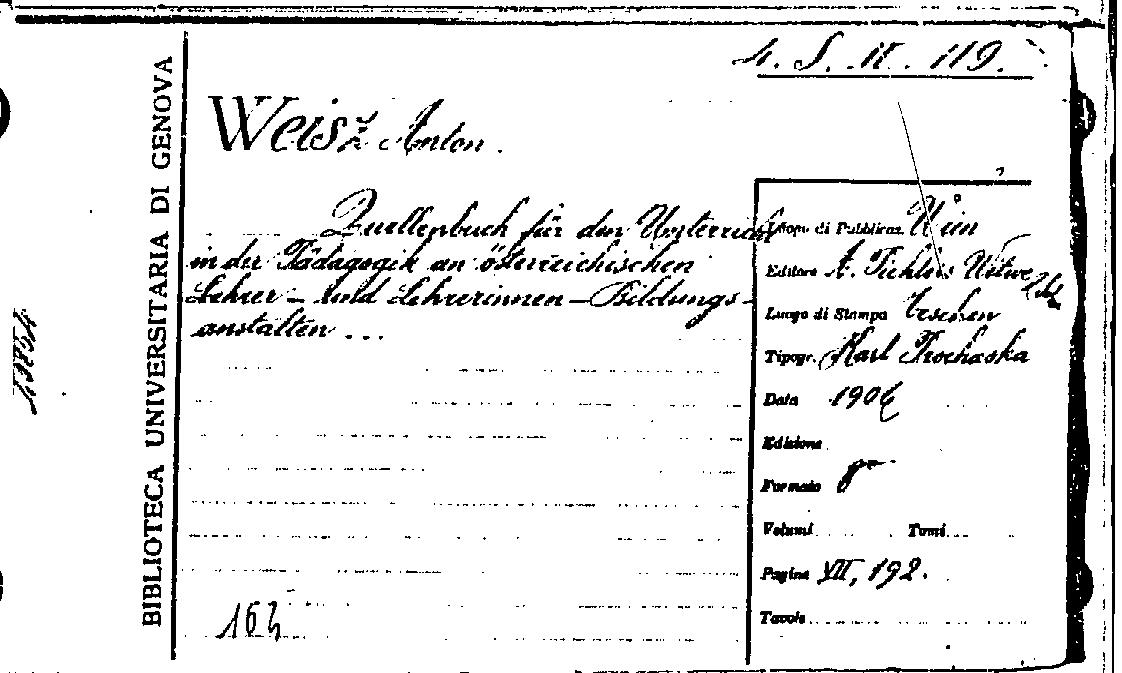 4. S. II. 119.
Weisz Anton.
Quellenbuch für den Unterricht
in der Pädagogik an österreichischen
Lehrer- und Lehrerinnen-Bildungs-
anstalten ...
163
BIBLIOTECA UNIVERSITARIA DI GENOVA
Luogo di Pubblicaz. Wien
Editore A. Pichlers Witwe
Luogo di Stampa Teschen
Tipogr. Karl Prochaska
Data 1906
Edizione
Formato 8°
Volumi Tomi
Pagine VII, 192.
Tavole